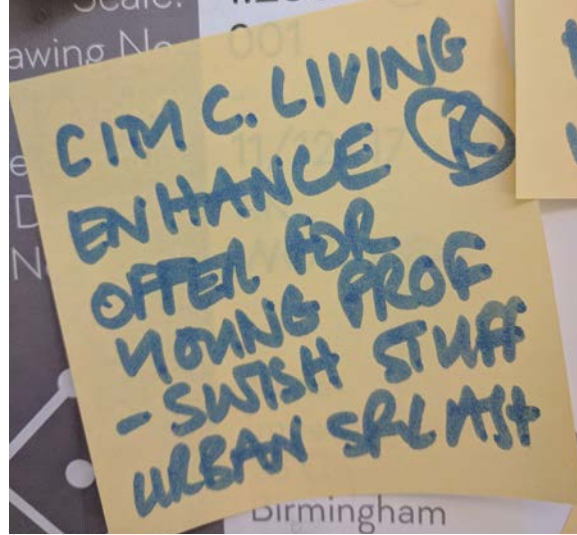 Scale:
awing No
001
CITY C. LIVING
ENHANCE R
11/12/17
OFFER FOR
YOUNG PROF
- SWISH STUFF
URBAN SPLASH
Birmingham